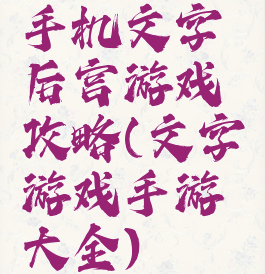 手机文字
后宫游戏
攻略(文字
游戏手游
大全)